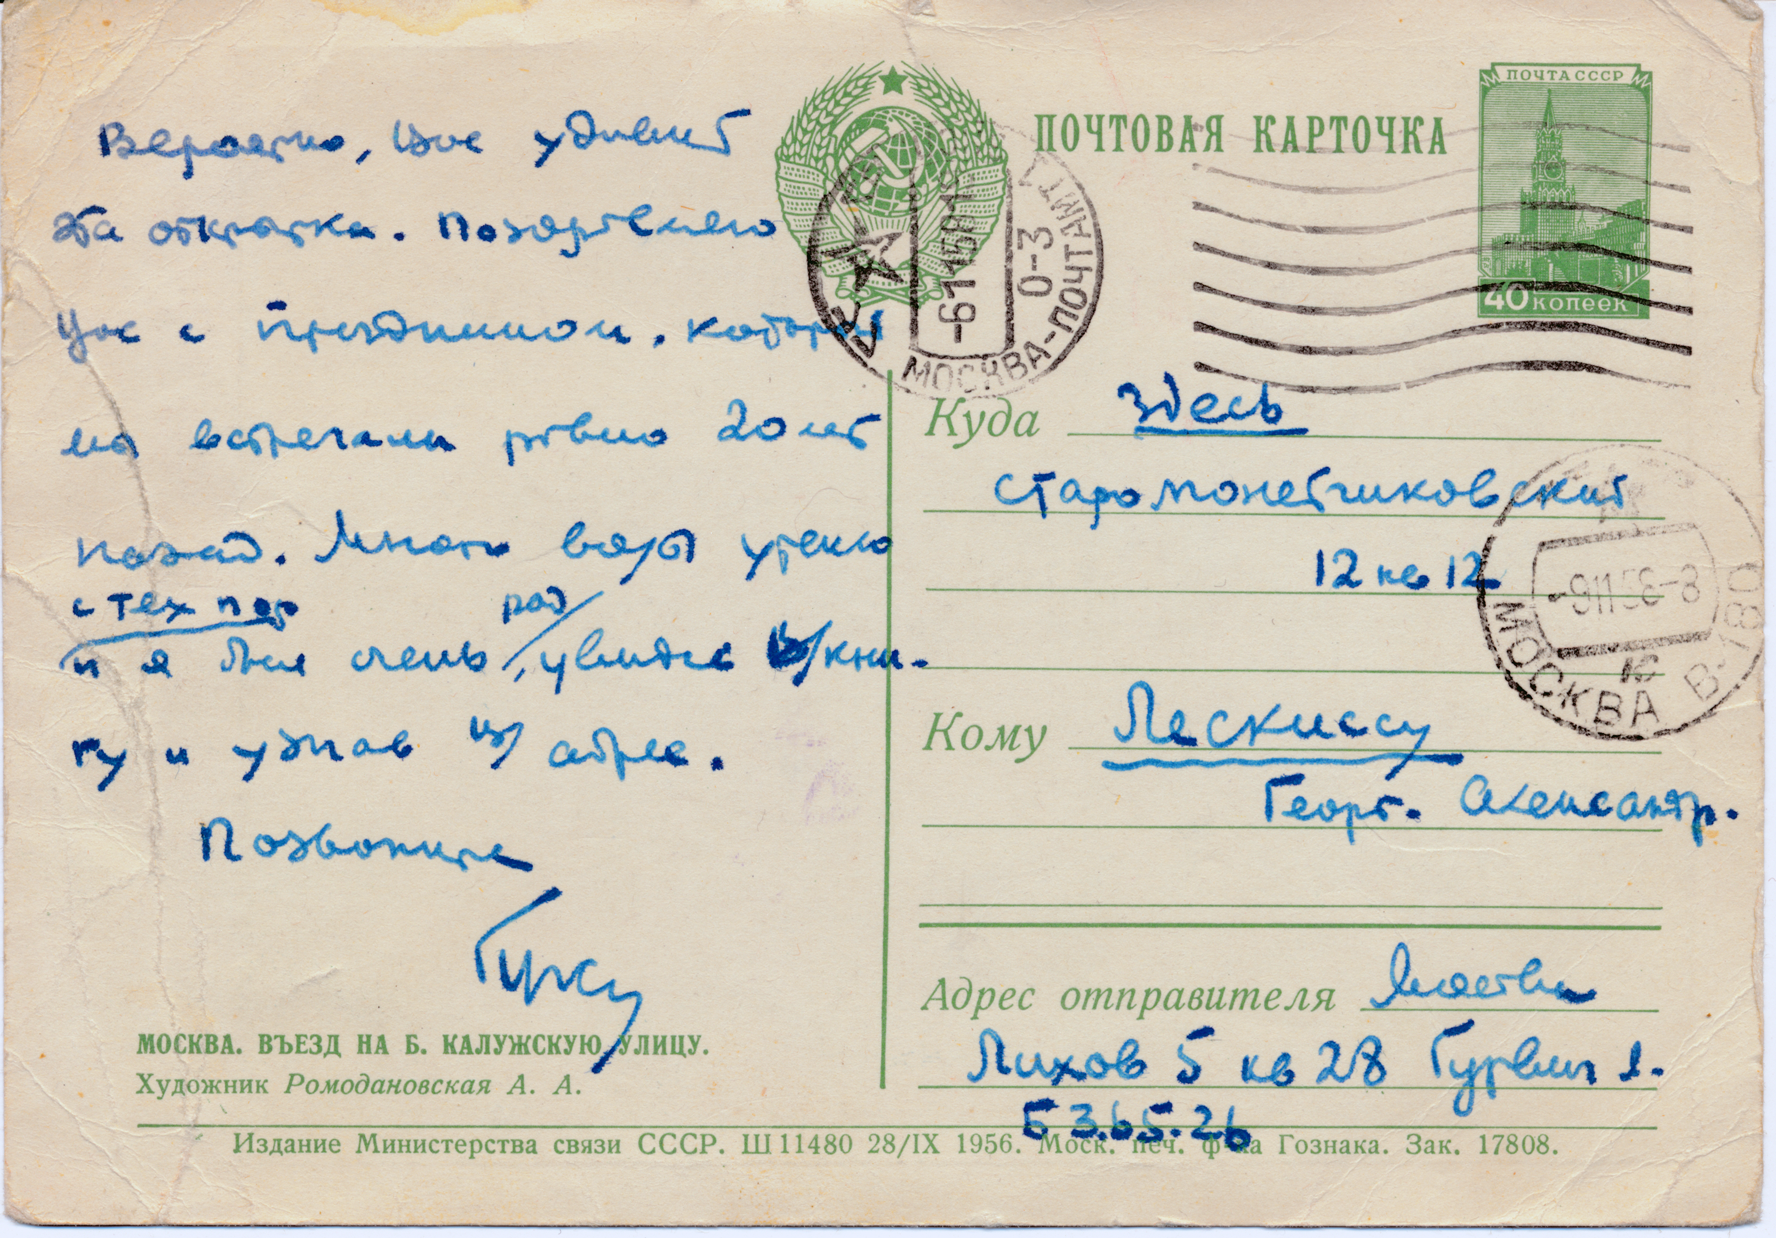 Вероятно, Вас удивит
эта открытка. Поздравляю
Вас с праздником, который
мы встречали ровно 20 лет
назад. Много воды утекло
с тех пор
и я был очень рад, увидев В/кни-
гу и узнав В/ адрес.
Позвоните
МОСКВА. ВЪЕЗД НА Б. КАЛУЖСКУЮ УЛИЦУ.
Художник Ромодановская А. А.
ПОЧТОВАЯ КАРТОЧКА
ПОЧТА СССР
40 КОПЕЕК
МОСКВА-ПОЧТАМТ
0-3
Куда Здесь
Старомонетчиковский
12 кв 12
МОСКВА В-180
Кому Лескиссу
Георг. Александр.
Адрес отправителя Москва
Лихов 5 кв 28 Гурвич
Б 3.65.26
Издание Министерства связи СССР. Ш 11480 28/IX 1956. Моск. печ. ф-ка Гознака. Зак. 17808.